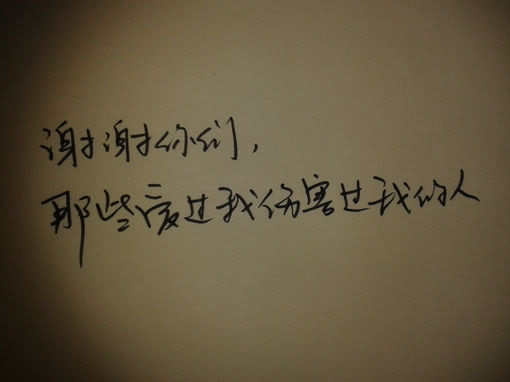 谢谢你们，
那些爱过我伤害过我的人